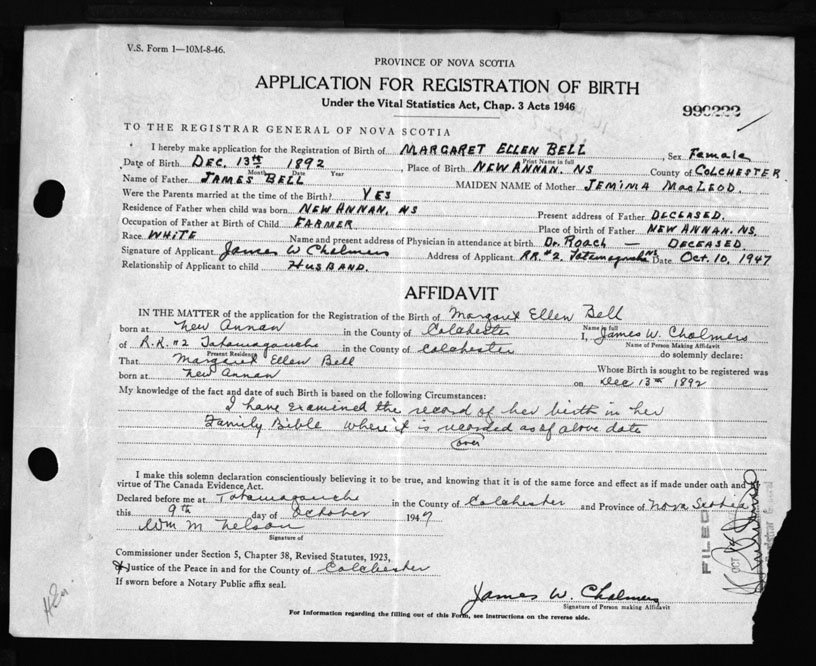 V.S. Form 1—10M-8-46.
PROVINCE OF NOVA SCOTIA
APPLICATION FOR REGISTRATION OF BIRTH
Under the Vital Statistics Act, Chap. 3 Acts 1946
TO THE REGISTRAR GENERAL OF NOVA SCOTIA
I hereby make application for the Registration of Birth of MARGARET ELLEN BELL, Sex Female
Print Name in full
Date of Birth DEC. 13th 1892, Place of Birth NEW ANNAN. NS County of COLCHESTER
Month Date Year
Name of Father JAMES BELL MAIDEN NAME of Mother JEMIMA MacLEOD.
Were the Parents married at the time of the Birth? YES
Residence of Father when child was born NEW ANNAN, NS Present address of Father DECEASED.
Occupation of Father at Birth of Child FARMER Place of birth of Father NEW ANNAN. NS.
Race WHITE Name and present address of Physician in attendance at birth Dr. ROACH — DECEASED.
Signature of Applicant James W Chalmers Address of Applicant RR.#2. Tatamagouche NS Date Oct. 10, 1947
Relationship of Applicant to child HUSBAND.
AFFIDAVIT
IN THE MATTER of the application for the Registration of the Birth of Margaret Ellen Bell
Name in full
born at New Annan in the County of Colchester I, James W. Chalmers
Name of Person Making Affidavit
of R.R. #2 Tatamagouche in the County of Colchester do solemnly declare:
Present Residence
That Margaret Ellen Bell Whose Birth is sought to be registered was
born at New Annan on Dec 13th 1892
My knowledge of the fact and date of such Birth is based on the following Circumstances:
I have examined the record of her birth in her
Family Bible where it is recorded as of above date
(over)
I make this solemn declaration conscientiously believing it to be true, and knowing that it is of the same force and effect as if made under oath and by
virtue of The Canada Evidence Act.
Declared before me at Tatamagouche in the County of Colchester and Province of Nova Scotia
this 9th day of October 1947
Wm M Nelson
Signature of
Commissioner under Section 5, Chapter 38, Revised Statutes, 1923,
Justice of the Peace in and for the County of Colchester
If sworn before a Notary Public affix seal.
James W. Chalmers
Signature of Person making Affidavit
For Information regarding the filling out of this Form, see instructions on the reverse side.
FILED
OCT